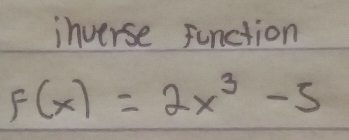 inverse Function
F(x) = 2x³ - 5